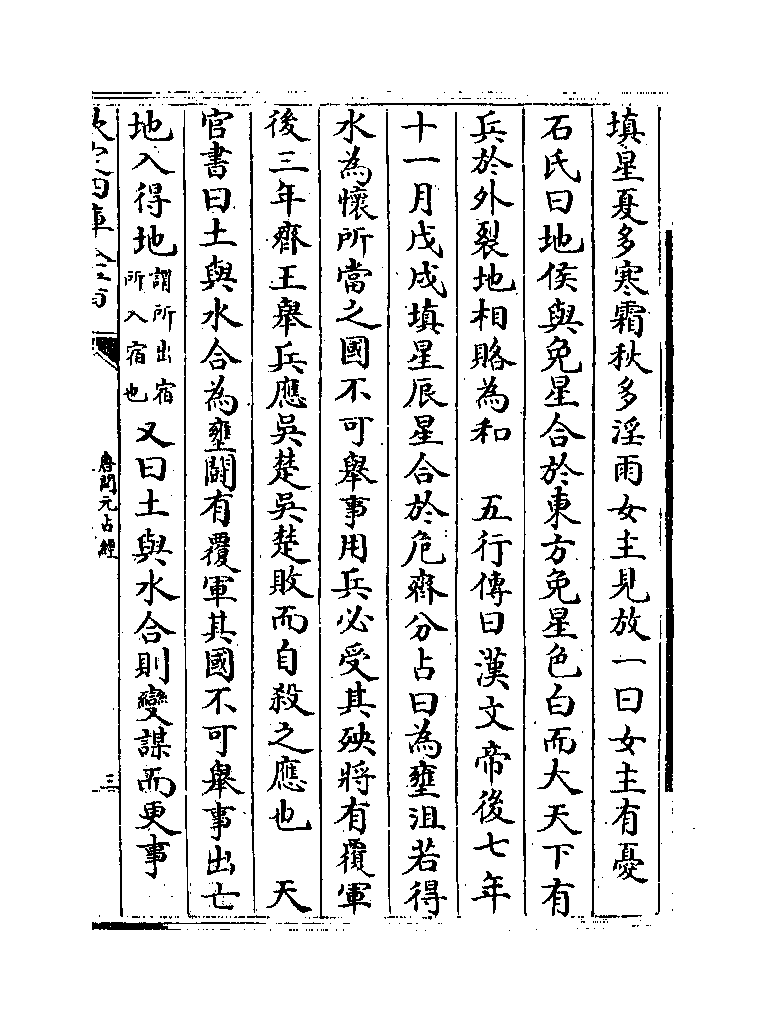 填星夏多寒霜秋多淫雨女主見放一曰女主有憂
石氏曰地侯與免星合於東方免星色白而大天下有
兵於外裂地相賂為和　五行傳曰漢文帝後七年
十一月戊戌填星辰星合於危齊分占曰為壅沮若得
水為懷所當之國不可舉事用兵必受其殃將有覆軍
後三年齊王舉兵應吳楚吳楚敗而自殺之應也　天
官書曰土與水合為壅闕有覆軍其國不可舉事出亡
地入得地謂所出宿所入宿也又曰土與水合則變謀而更事
欽定四庫全書
唐開元占經
三